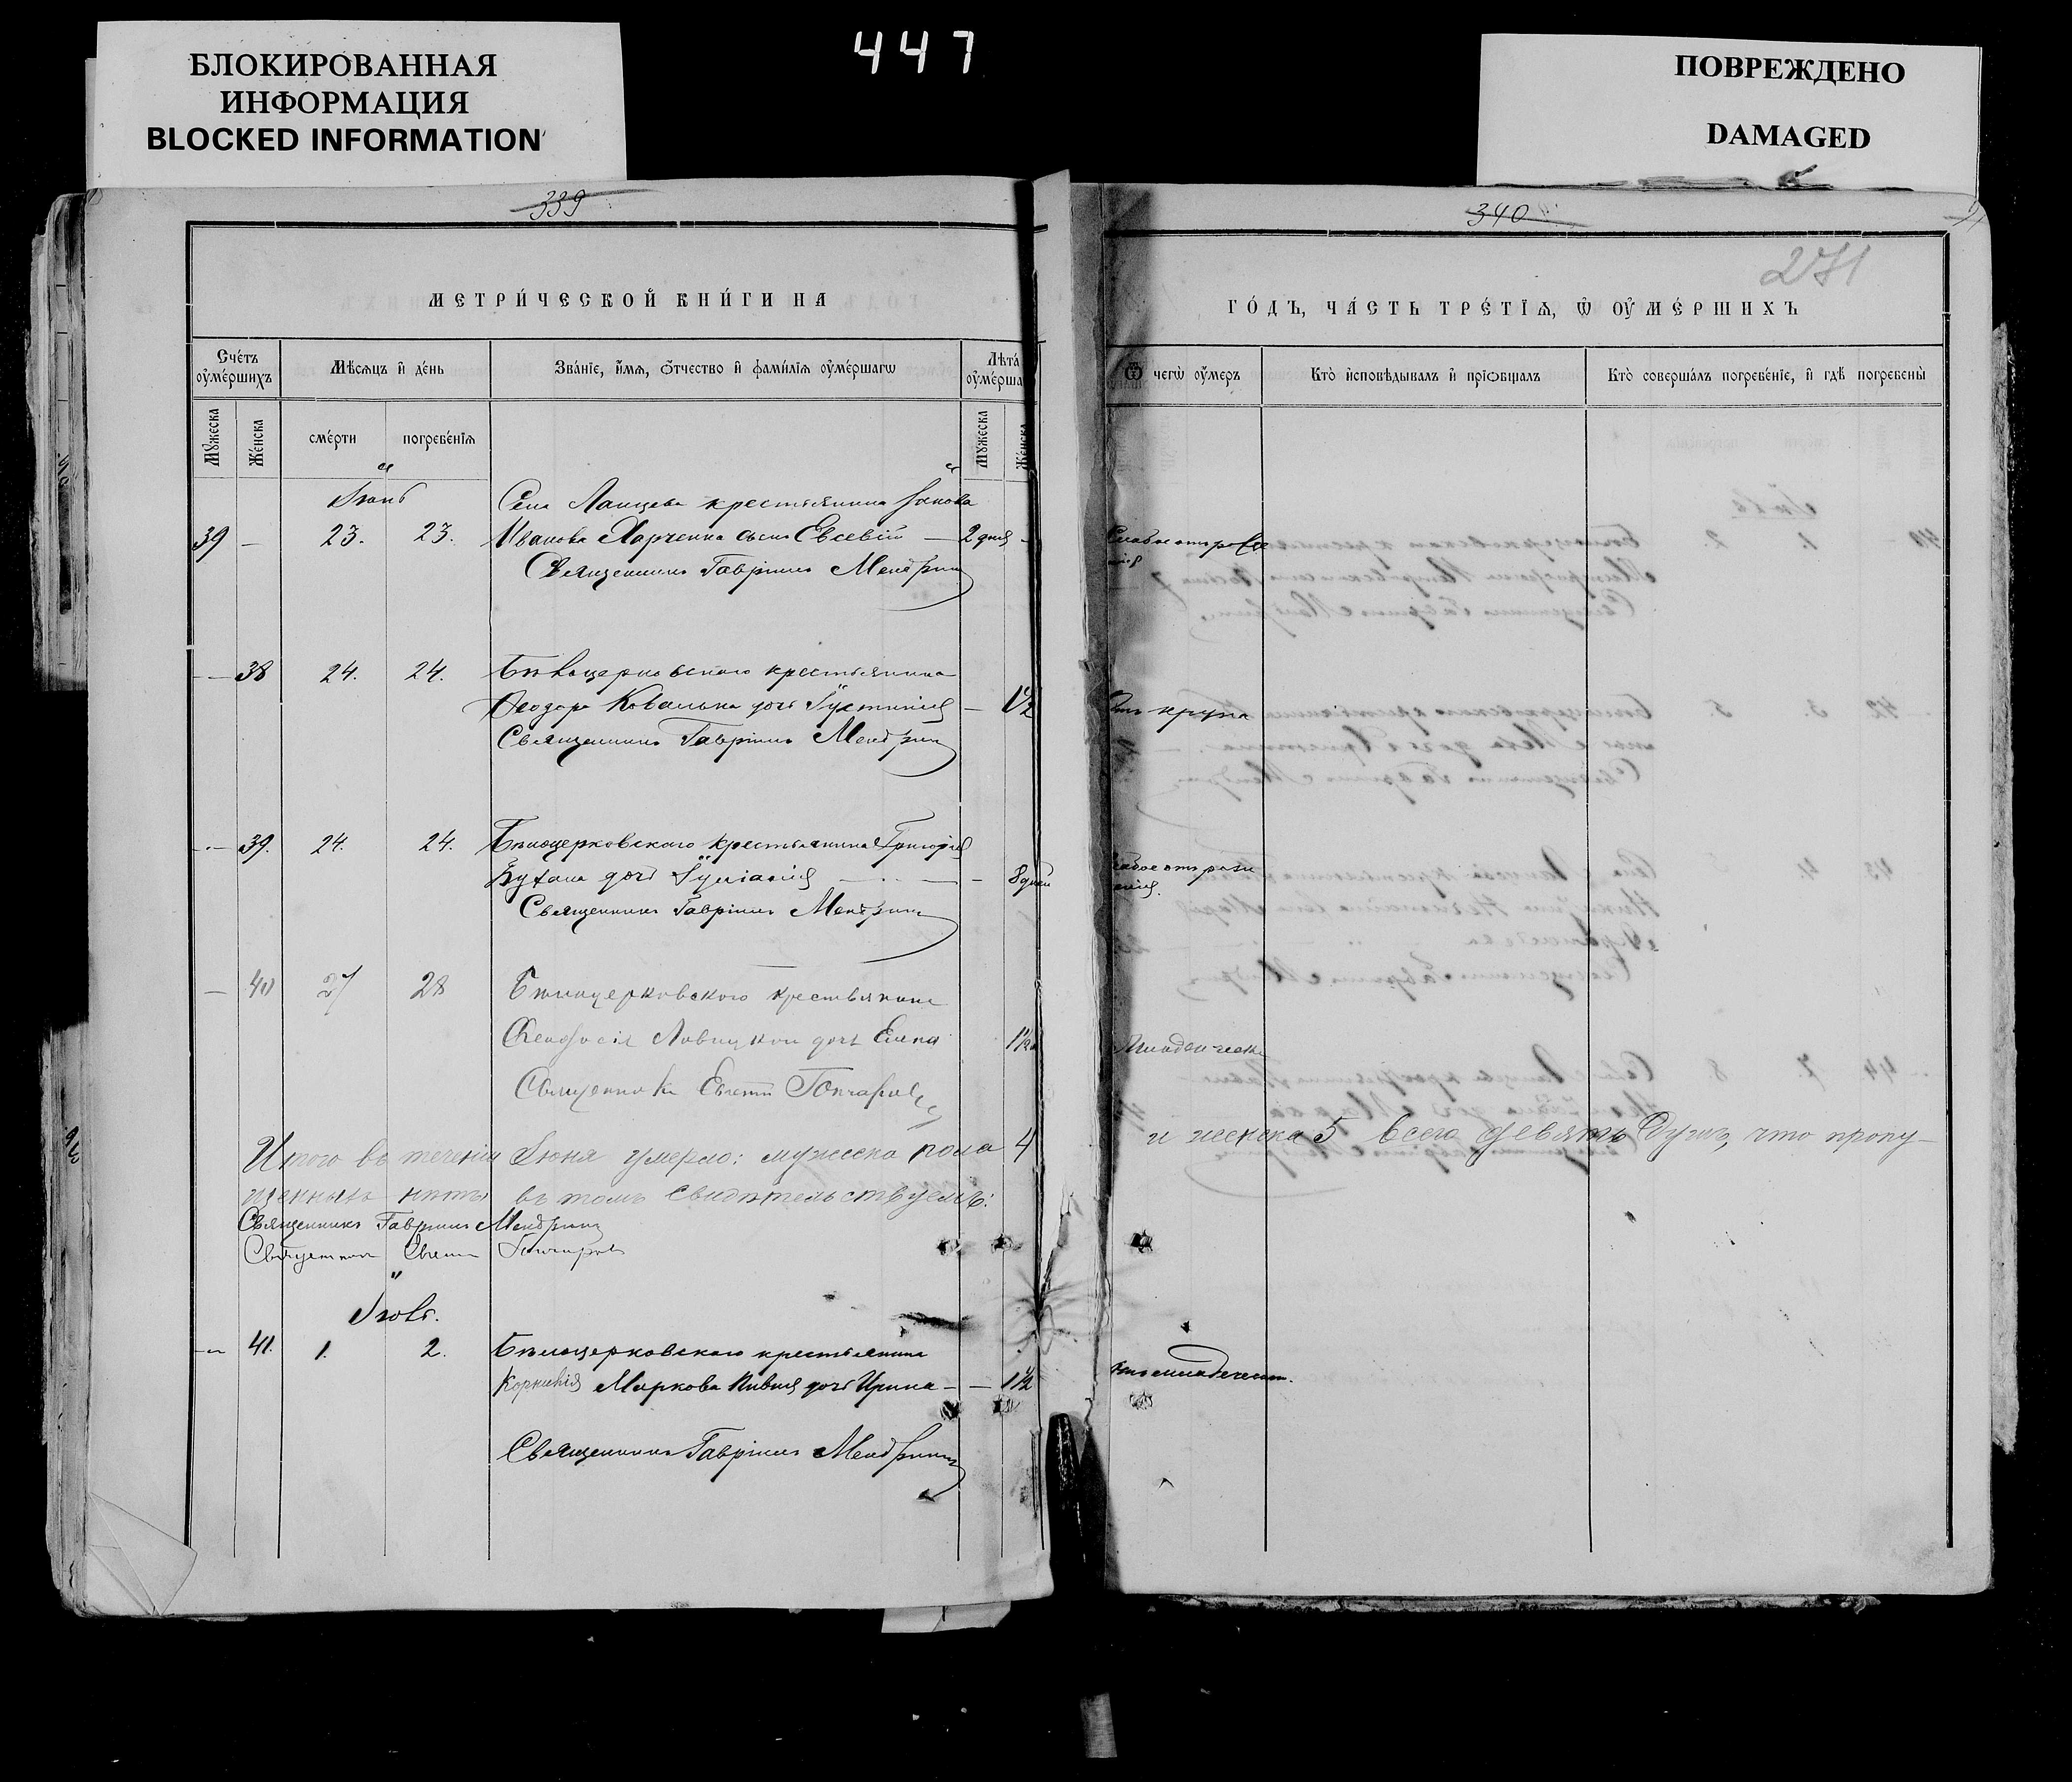 БЛОКИРОВАННАЯ
ИНФОРМАЦИЯ
BLOCKED INFORMATION
447
ПОВРЕЖДЕНО
DAMAGED
339
340
271
МЕТРИ́ЧЕСКОЙ КНИ́ГИ НА
ГО́ДЪ, ЧА́СТЬ ТРЕ́ТЇѦ, Ѿ ОУ҆МЕ́РШИХЪ
Сче́тъ оу҆ме́ршихъ
Мѣ́сѧцъ и҆ де́нь
Зва́нїе, и҆́мѧ, ѻ҆́тчество и҆ фами́лїѧ оу҆ме́ршагѡ
Лѣта̀ оу҆ме́рша
Ѿ чегѡ̀ оу҆́меръ
Кто̀ и҆сповѣ́дывалъ и҆ прїѡбща́лъ
Кто̀ соверша́лъ погребе́нїе, и҆ гдѣ̀ погребены̀
Мꙋ́жеска
Же́нска
сме́рти
погребе́нїѧ
Мꙋ́жеска
Же́нска
Іюнь
Села Ланцева крестьянина Іакова
39 — 23. 23. Иванова Харченка сынъ Евсевій — 2 дня —
Священникъ Гавріилъ Мендрин
— 38 24. 24. Бѣлоцерковскаго крестьянина
Ѳеодора Ковалька дочь Іустинія — 1½ Отъ крупа
Священникъ Гавріилъ Мендрин
— 39. 24. 24. Бѣлоцерковскаго крестьянина Григорія
дочь Іуліанія — 8 дней
Священникъ Гавріилъ Мендрин
— 40 27 28 Бѣлоцерковскаго крестьянина
Ѳеодосія дочь Елена 1½
Священникъ Гончаров
Итого въ теченіи Іюня умерло: мужеска пола 4 и женска 5 всего девять душъ, что пропу-
щенныхъ нѣтъ въ томъ свидѣтельствуемъ:
Священникъ Гавріилъ Мендрин
Священникъ Гончаров
Іюль.
— 41. 1. 2. Бѣлоцерковскаго крестьянина
Корнилія Маркова дочь Ирина — — 1½
Священникъ Гавріилъ Мендрин